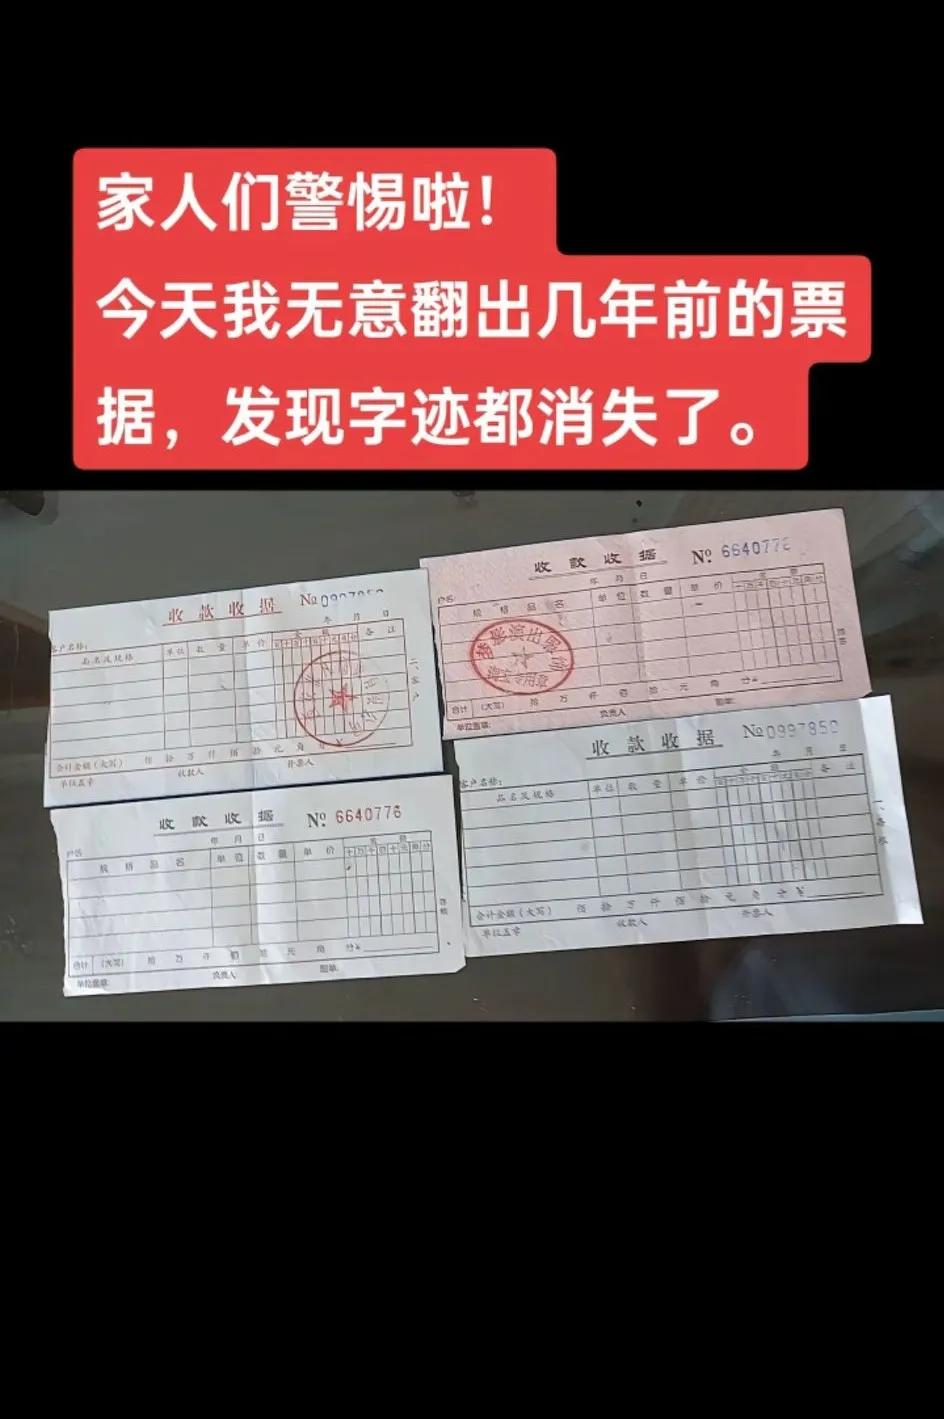 家人们警惕啦！
今天我无意翻出几年前的票
据，发现字迹都消失了。
收款收据 №
年 月 日
客户名称：
品名及规格 单位 数量 单价 金额 备注
合计金额（大写） 佰 拾 万 仟 佰 拾 元 角
单位盖章 收款人 开票人
收款收据 №
年 月 日
户名
规格品名 单位 数量 单价 金额
合计 （大写） 拾 万 仟 佰 拾 元 角 分¥
单位盖章: 负责人
收款收据 № 6640776
年 月 日
户名
规格品名 单位 数量 单价 金额
合计 （大写） 拾 万 仟 佰 拾 元 角 分¥
单位盖章: 负责人
收款收据 №
年 月 日
客户名称：
品名及规格 单位 数量 单价 金额 备注
合计金额（大写） 佰 拾 万 仟 佰 拾 元
单位盖章 收款人 开票人